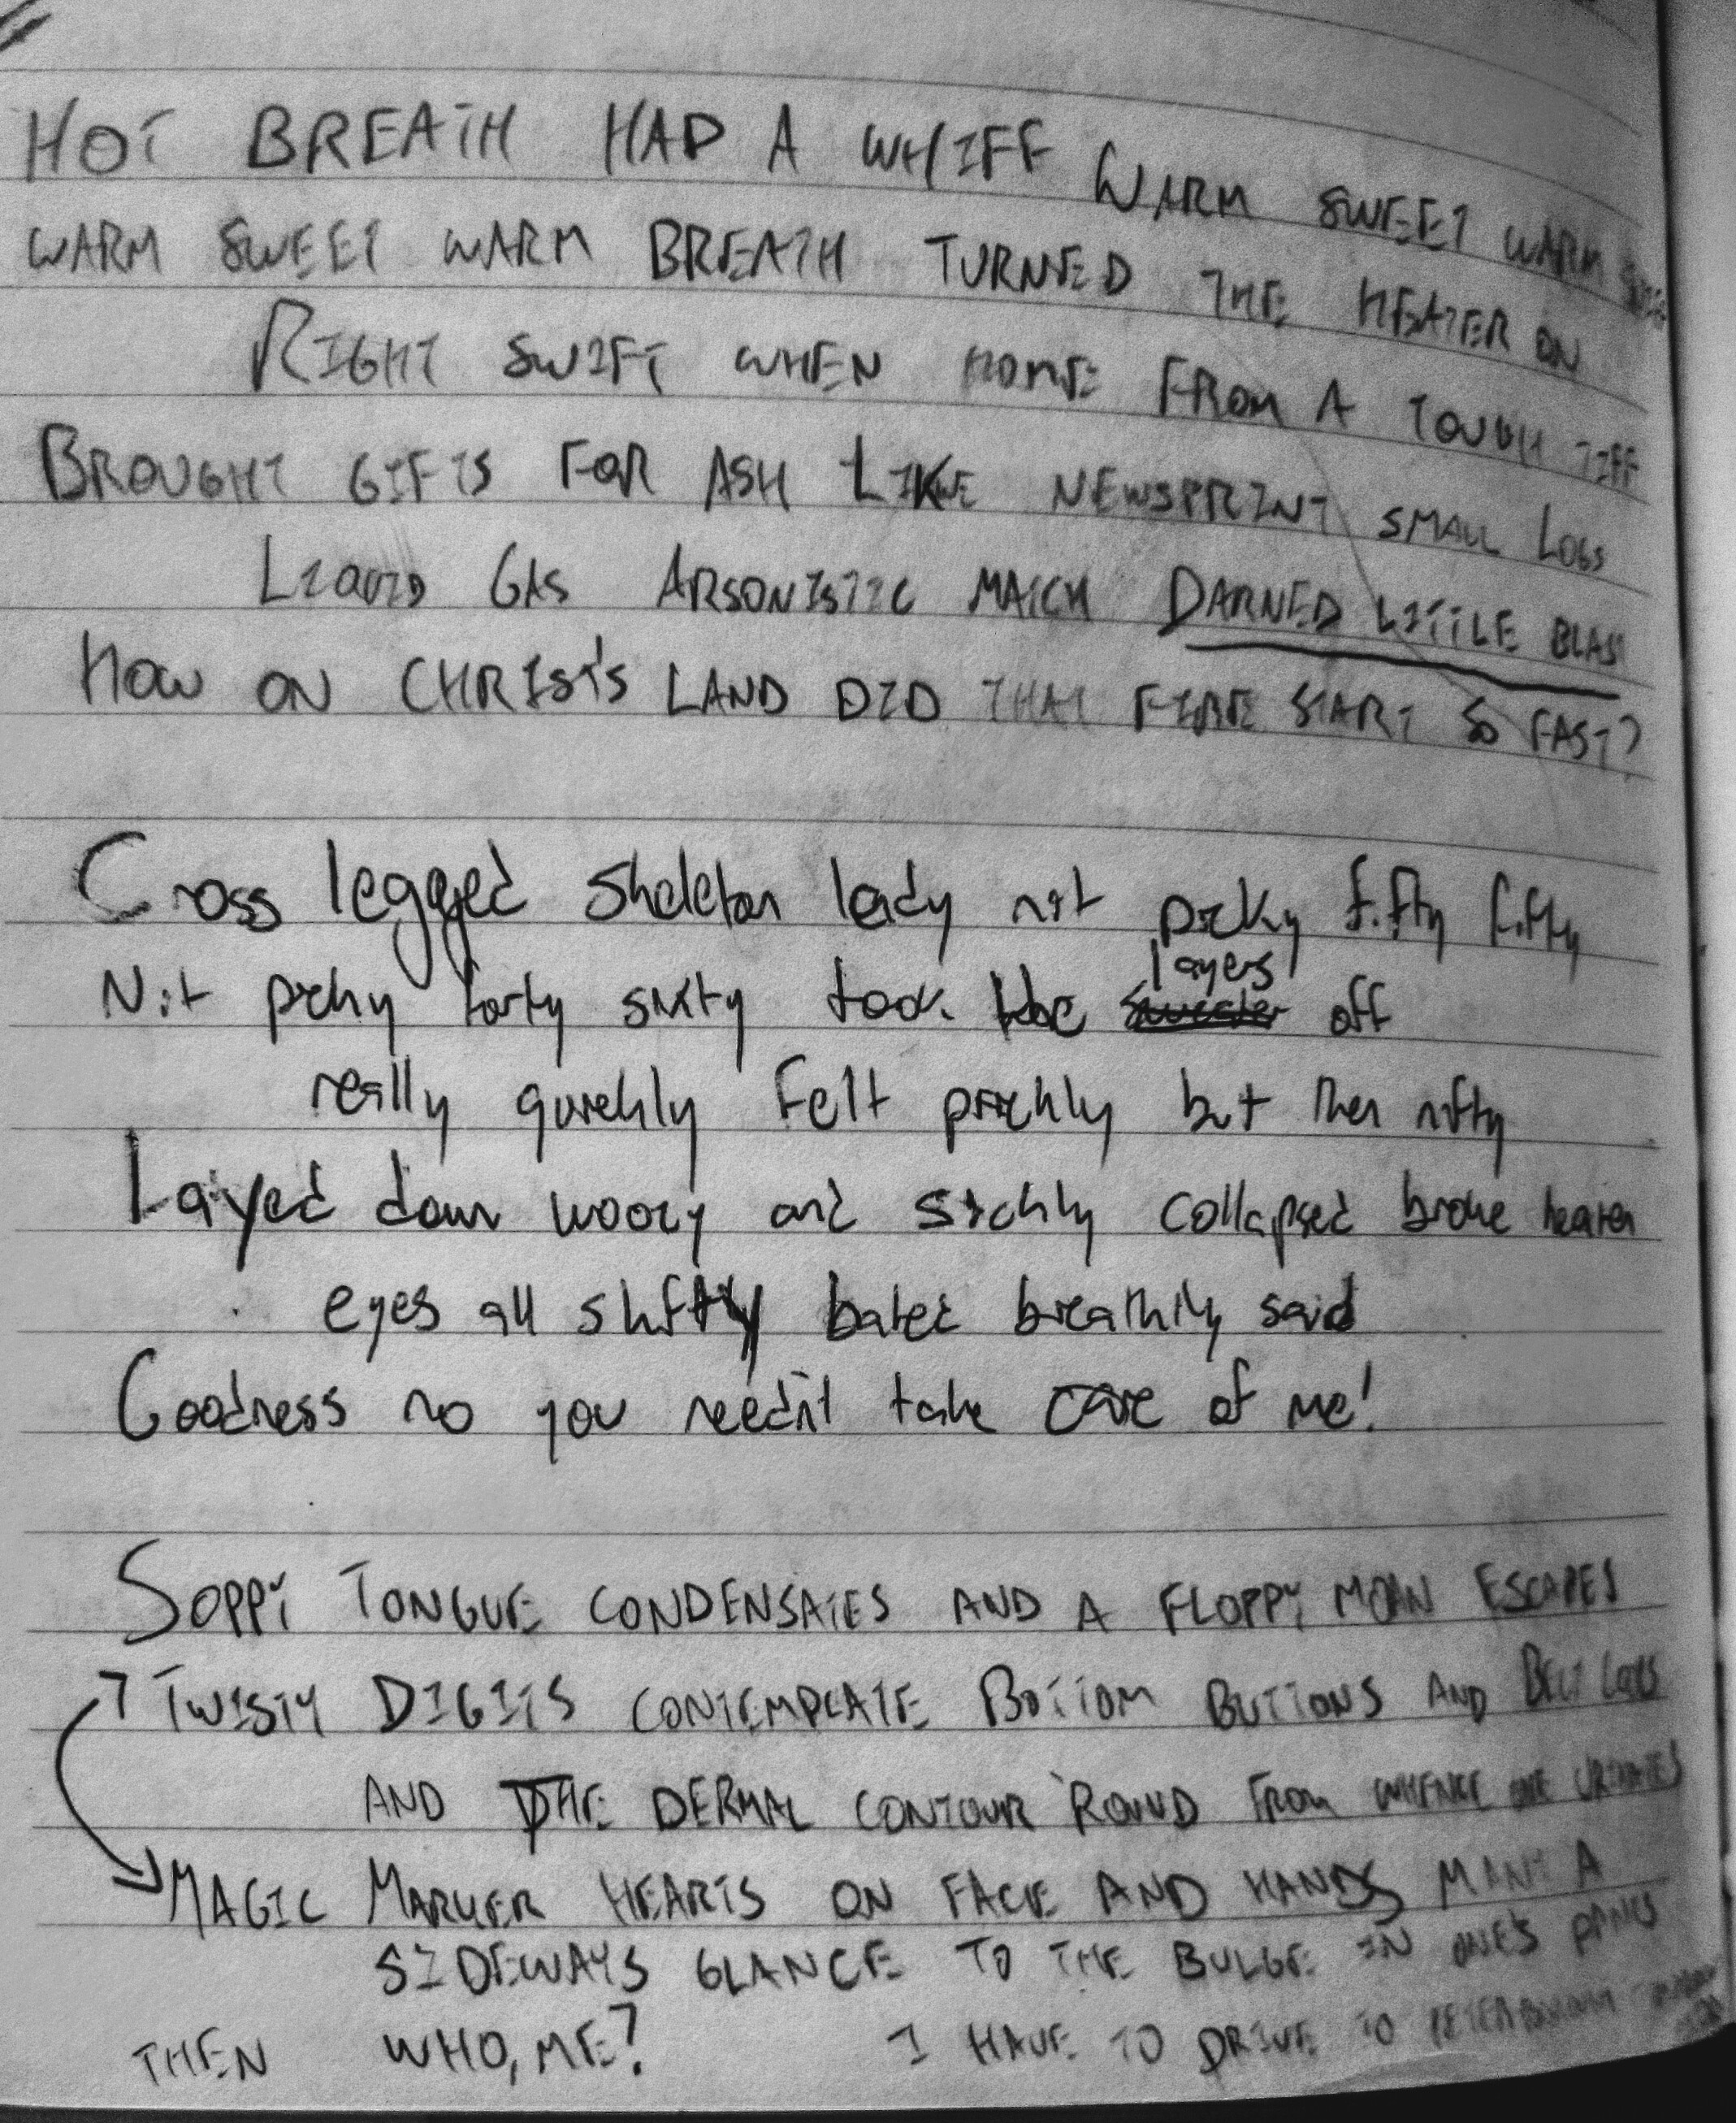 HOT BREATH HAD A WHIFF WARM SWEET WARM
WARM SWEET WARM BREATH TURNED THE HEATER ON
RIGHT SWIFT WHEN HOME FROM A TOUGH TIFF
BROUGHT GIFTS FOR ASH LIKE NEWSPRINT SMALL LOGS
LIQUID GAS ARSONISTIC MATCH DARNED LITTLE BLAST
HOW ON CHRIST'S LAND DID THAT FIRE START SO FAST?
Cross legged skeleton lady not picky fifty fifty
layers
Not picky forty sixty took the sweater off
really quickly felt prickly but then nifty
Layed down woozy and sickly collapsed broke heater
eyes all shifty bated breathily said
Goodness no you needn't take care of me!
SOPPY TONGUE CONDENSATES AND A FLOPPY MOAN ESCAPES
TWISTY DIGITS CONTEMPLATE BOTTOM BUTTONS AND BELT LOOPS
AND THE DERMAL CONTOUR 'ROUND FROM WHENCE ONE URINATES
MAGIC MARKER HEARTS ON FACE AND HANDS MANY A
SIDEWAYS GLANCE TO THE BULGE IN ONE'S PANTS
THEN WHO, ME? I HAVE TO DRIVE TO PETERBOROUGH